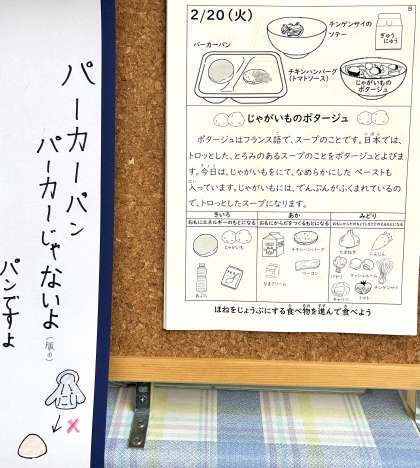 パーカーパン
パーカーじゃないよ
(服の)
パンですよ
2/20(火)
チンゲンサイの
ソテー
ぎゅう
にゅう
パーカーパン
チキンハンバーグ
(トマトソース)
じゃがいもの
ポタージュ
じゃがいものポタージュ
ポタージュはフランス語で、スープのことです。日本では、
トロッとした、とろみのあるスープのことをポタージュとよびま
す。今日は、じゃがいもをにて、なめらかにした ペーストも
入っています。じゃがいもには、でんぷんがふくまれているの
で、トロっとしたスープになります。
きいろ
あか
みどり
おもにエネルギーのもとになる
おもにからだをつくるもとになる
チキンハンバーグ
ベーコン
なまクリーム
あぶら
たまねぎ
にんじん
パセリ
マッシュルーム
チンゲンサイ
キャベツ
トマト
ほねをじょうぶにする食べ物を進んで食べよう